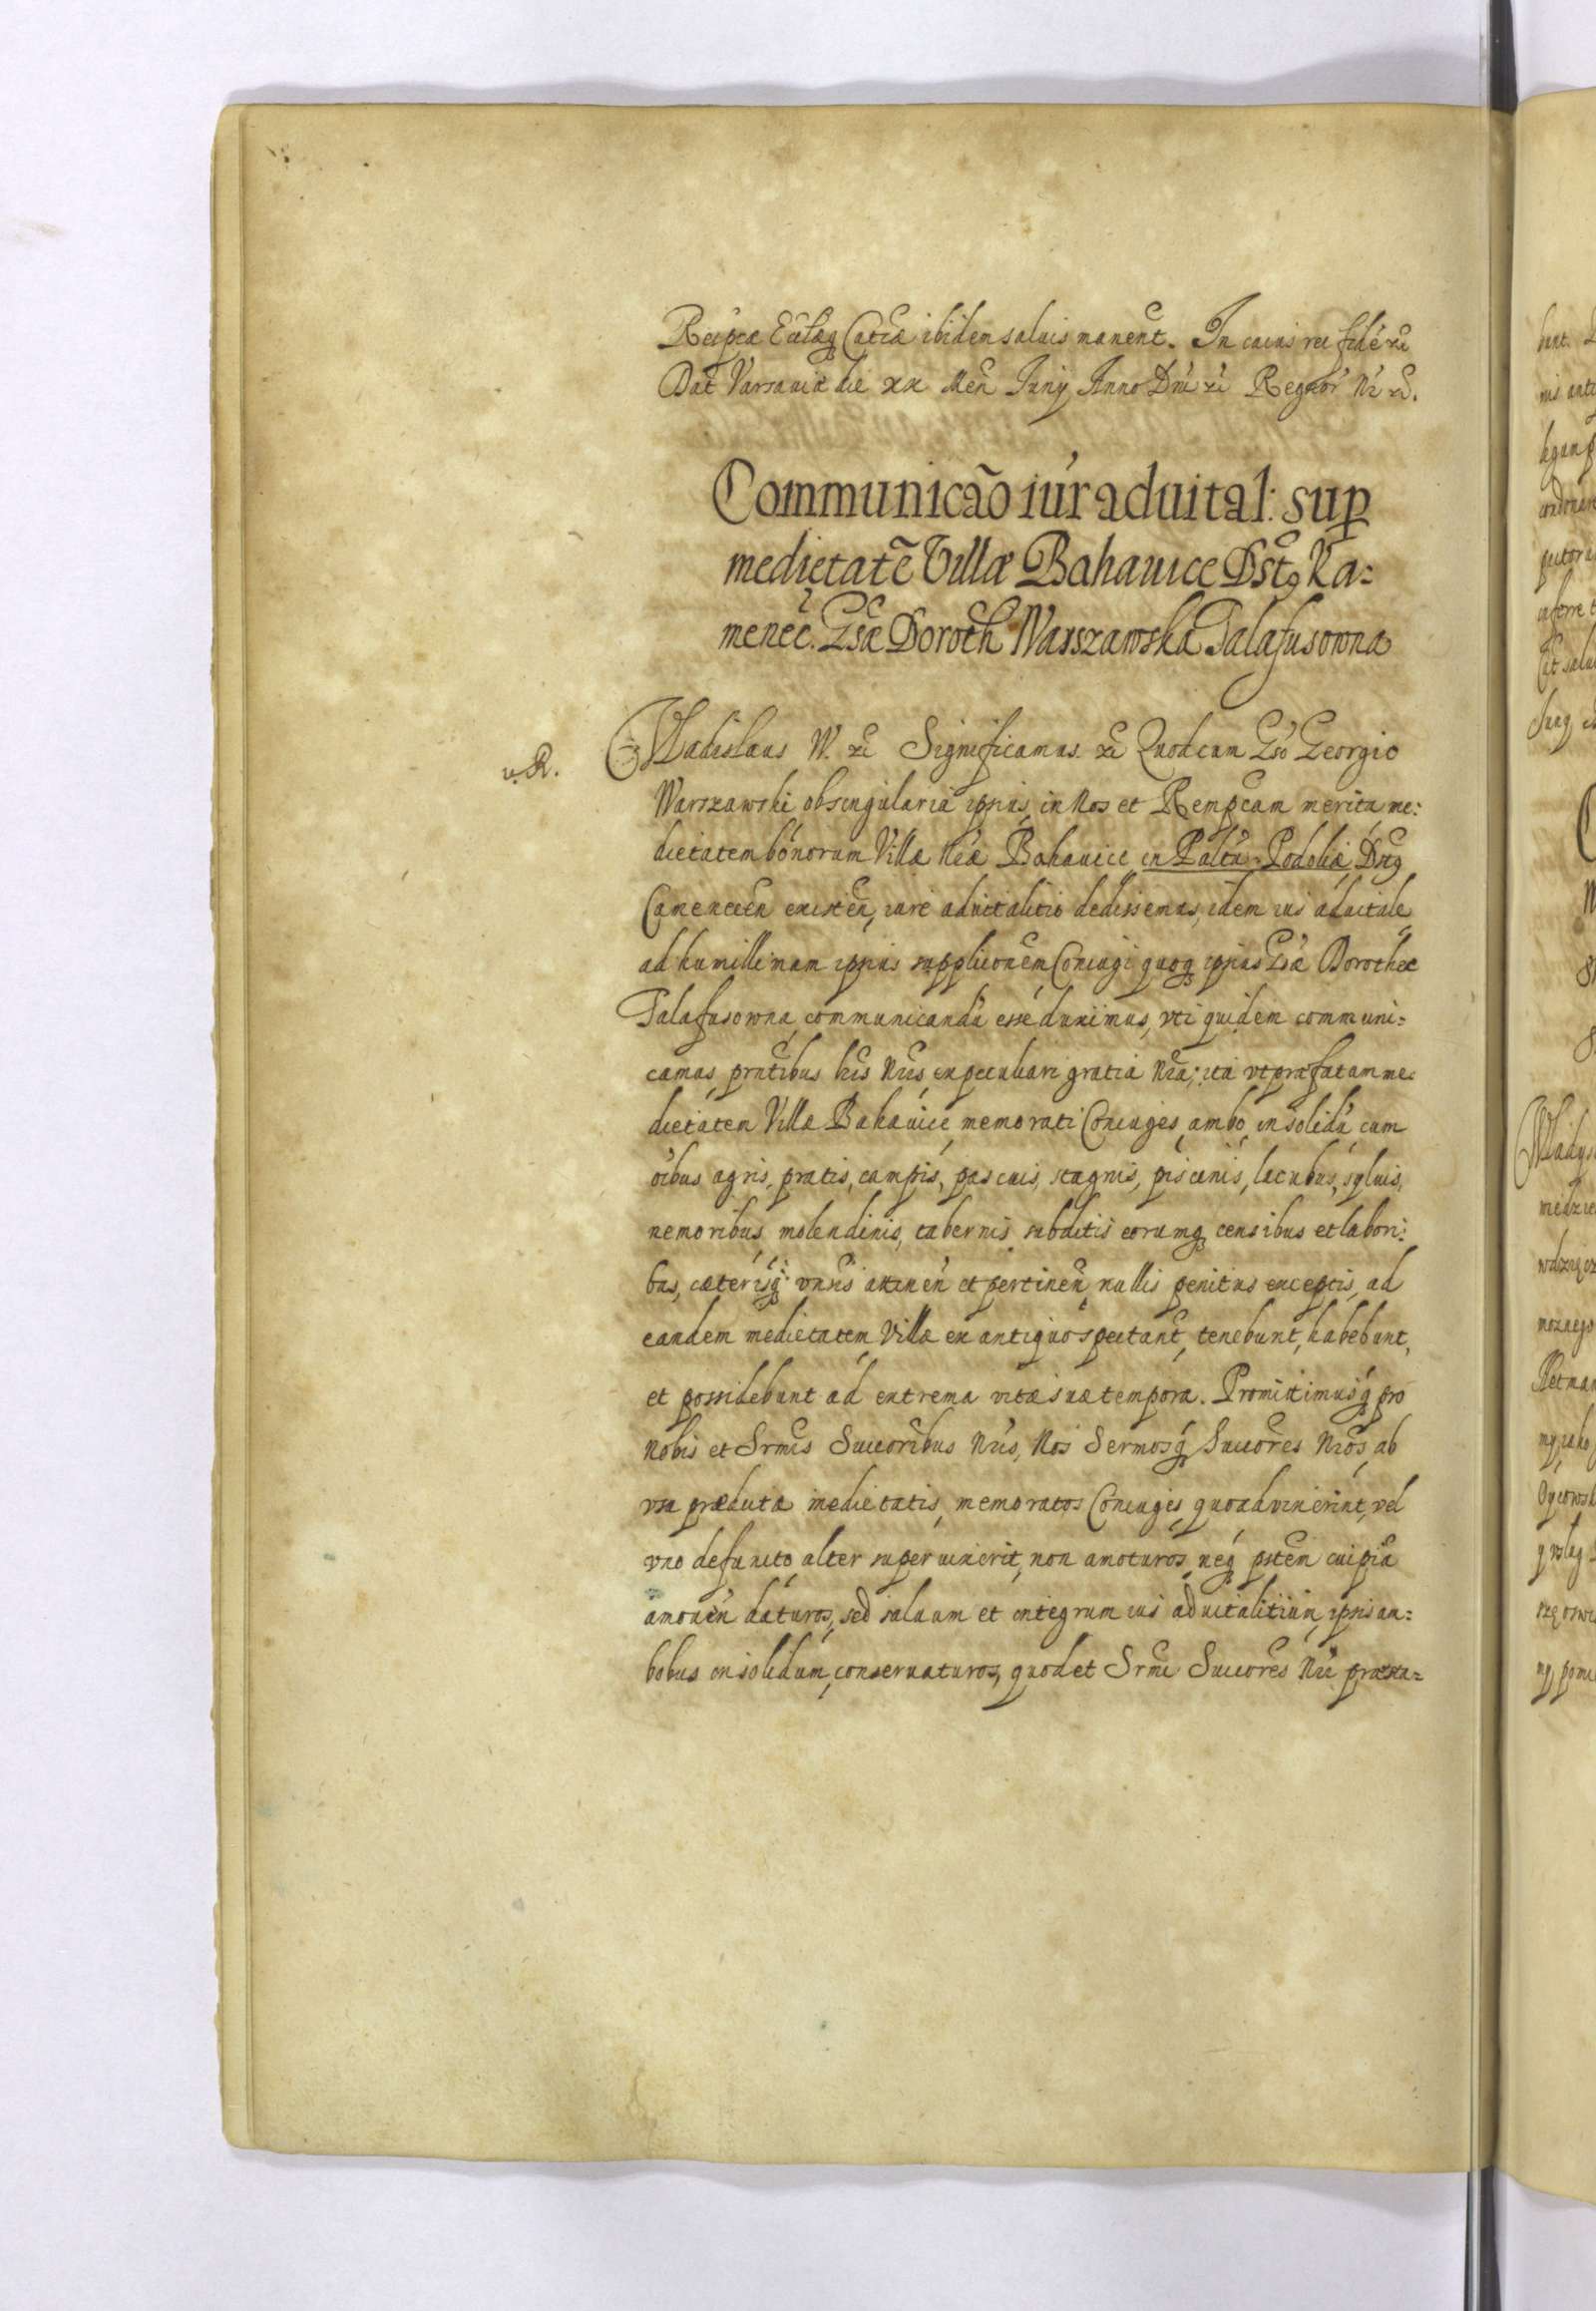 Reipcæ Ecclæq Catcæ ibidem saluis manent. In cuius rei fidē ꝛc
Dat Varsauiæ die xx Men Iunij Anno Dni ꝛc Regnor Nr ꝛc.
Communicão iur aduital: sup
medietatē Villæ Bahauice Dstq Ka=
menec. Gsæ Doroth Warszawska Talafusowna
u. R.
Wladislaus IV. ꝛc Significamus. ꝛc Quod cum Gso Georgio
Warszawski ob singularia ipsius in Nos et Rempcam merita me:
dietatem bonorum Villæ Nræ Bahauice in Paltu Podoliæ Dsttq
Camenecen existen, iure aduitalitio dedissemus, idem ius aduitale
ad humillimam ipsius supplicoñem Coniugi quoq ipsius Gsæ Dorotheæ
Talafusowna communicandū esse duximus, vti quidem communi=
camus, prntibus hiis Nris ex peculiari gratia Nra; ita vt præfatam me=
dietatem Villæ Bahauice memorati Coniuges, ambo in solidū cum
oibus agris, pratis, campis, pascuis, stagnis, piscinis, lacubus, syluis,
nemoribus, molendinis, tabernis subditis eorumq censibus et labori:
bus, cæterisq vnsis attinen et pertinen nullis penitus exceptis, ad
eandem medietatem Villæ ex antiquo spectant, tenebunt, habebunt,
et possidebunt ad extrema vitæ suæ tempora. Promittimusq pro
Nobis et Srmis Succoribus Nris, Nos Sermosq Succores Nros, ab
vsu prædictæ medietatis, memoratos Coniuges, quoad vixerint, vel
vno defuncto, alter superuixerit, non amoturos, neq ptem cuipiā
amouen daturos, sed saluum et integrum ius aduitalitium, ipsis am=
bobus in solidum, conseruaturos, quod et Srmi Succores Nri præsta=